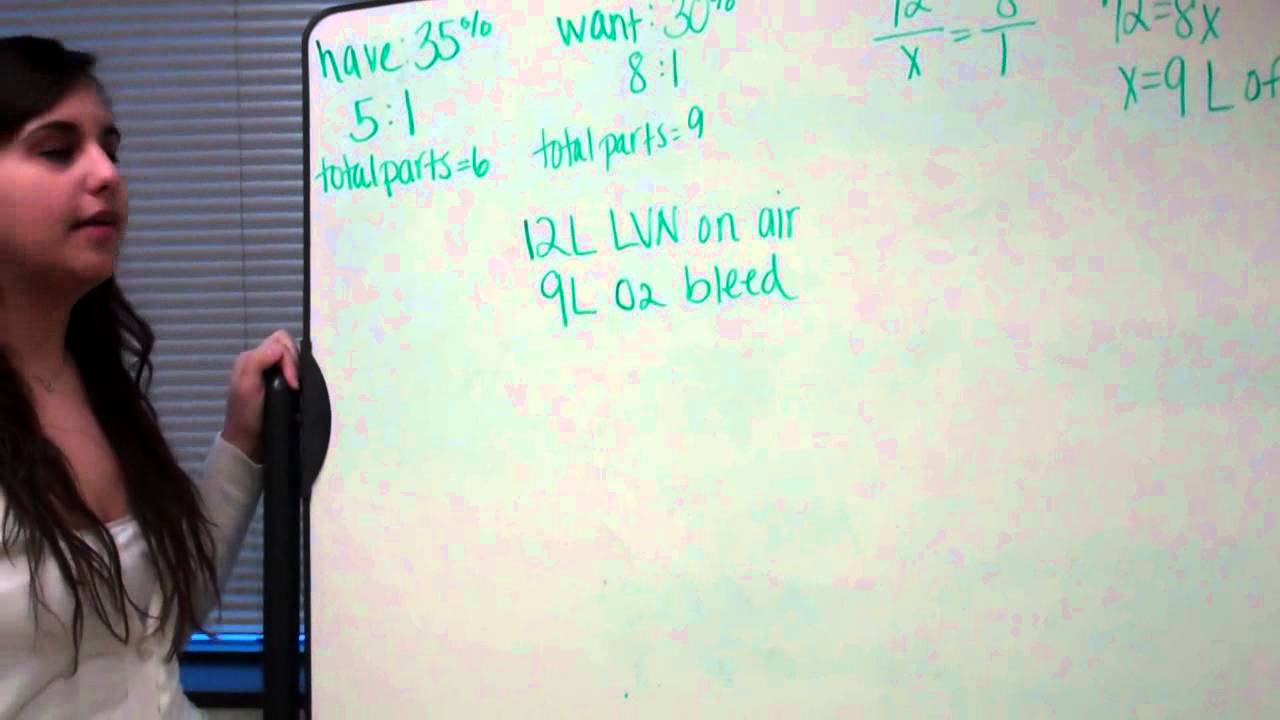 have: 35%
5:1
total parts=6
want: 30%
8:1
total parts=9
12L LVN on air
9L O2 bleed
72/x = 8/1
72=8x
x=9 L of